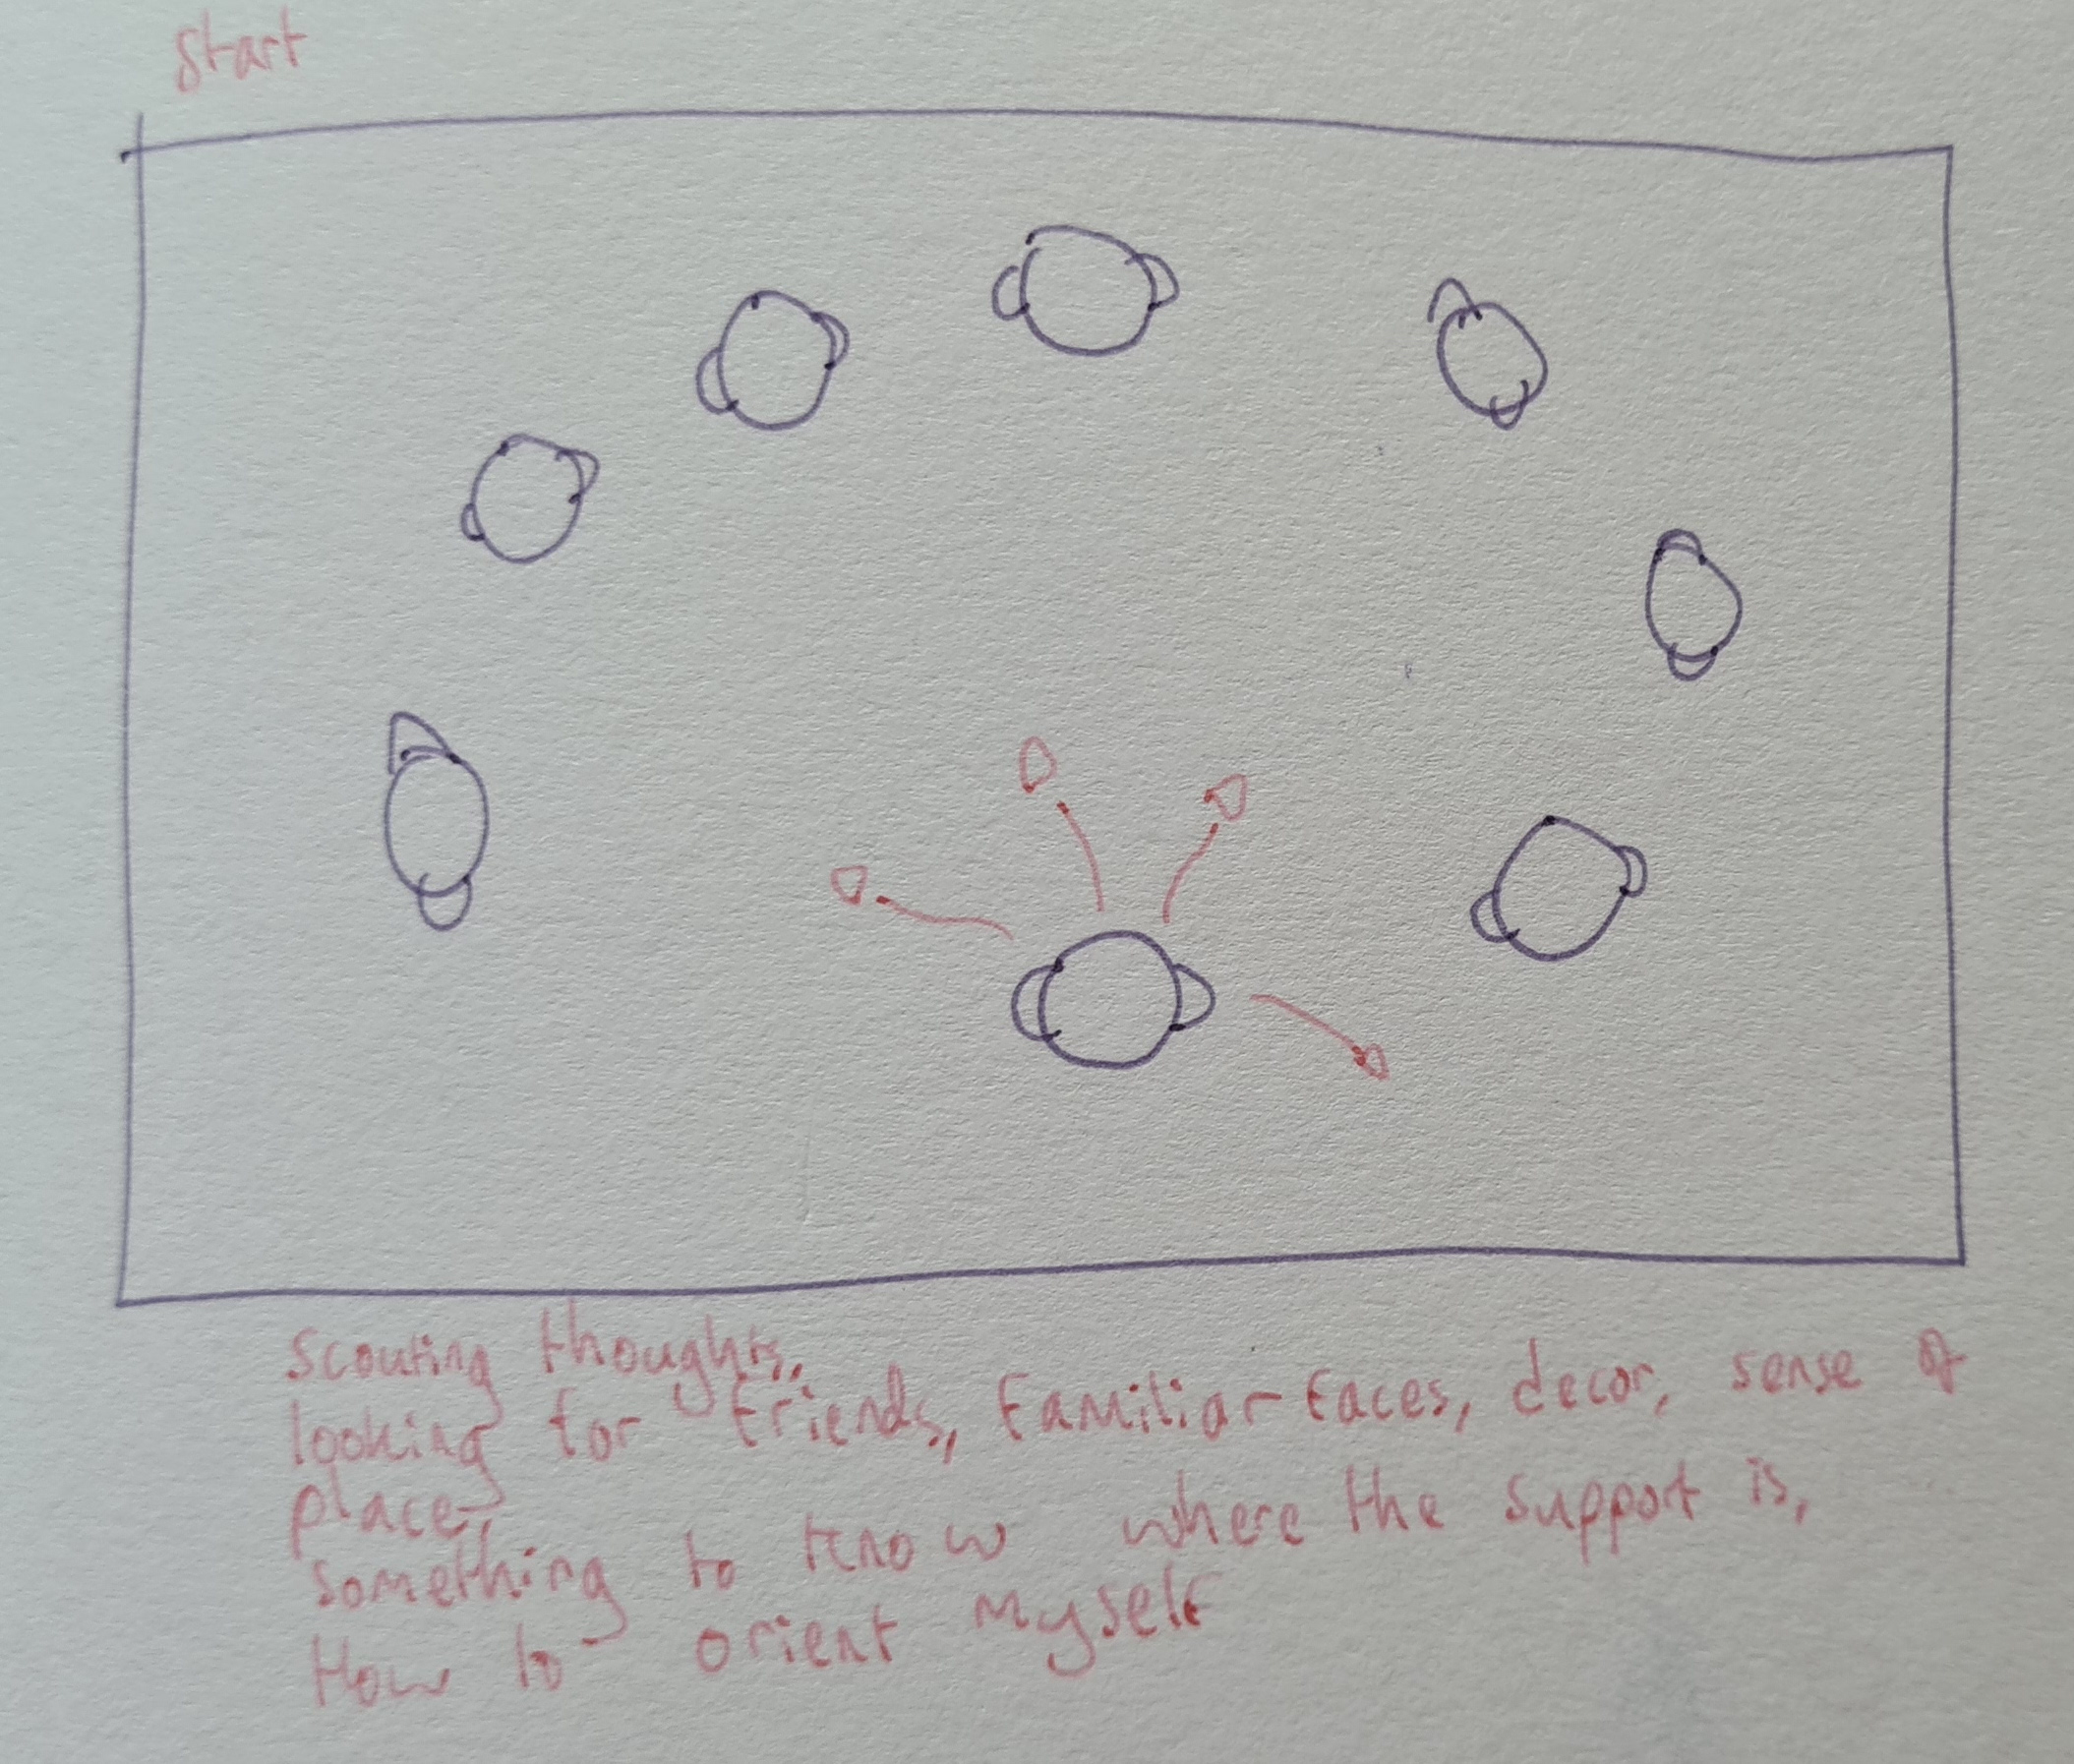 Start
Scouting thoughts,
looking for friends, familiar faces, decor, sense of
place,
Something to know where the support is,
How to orient myself